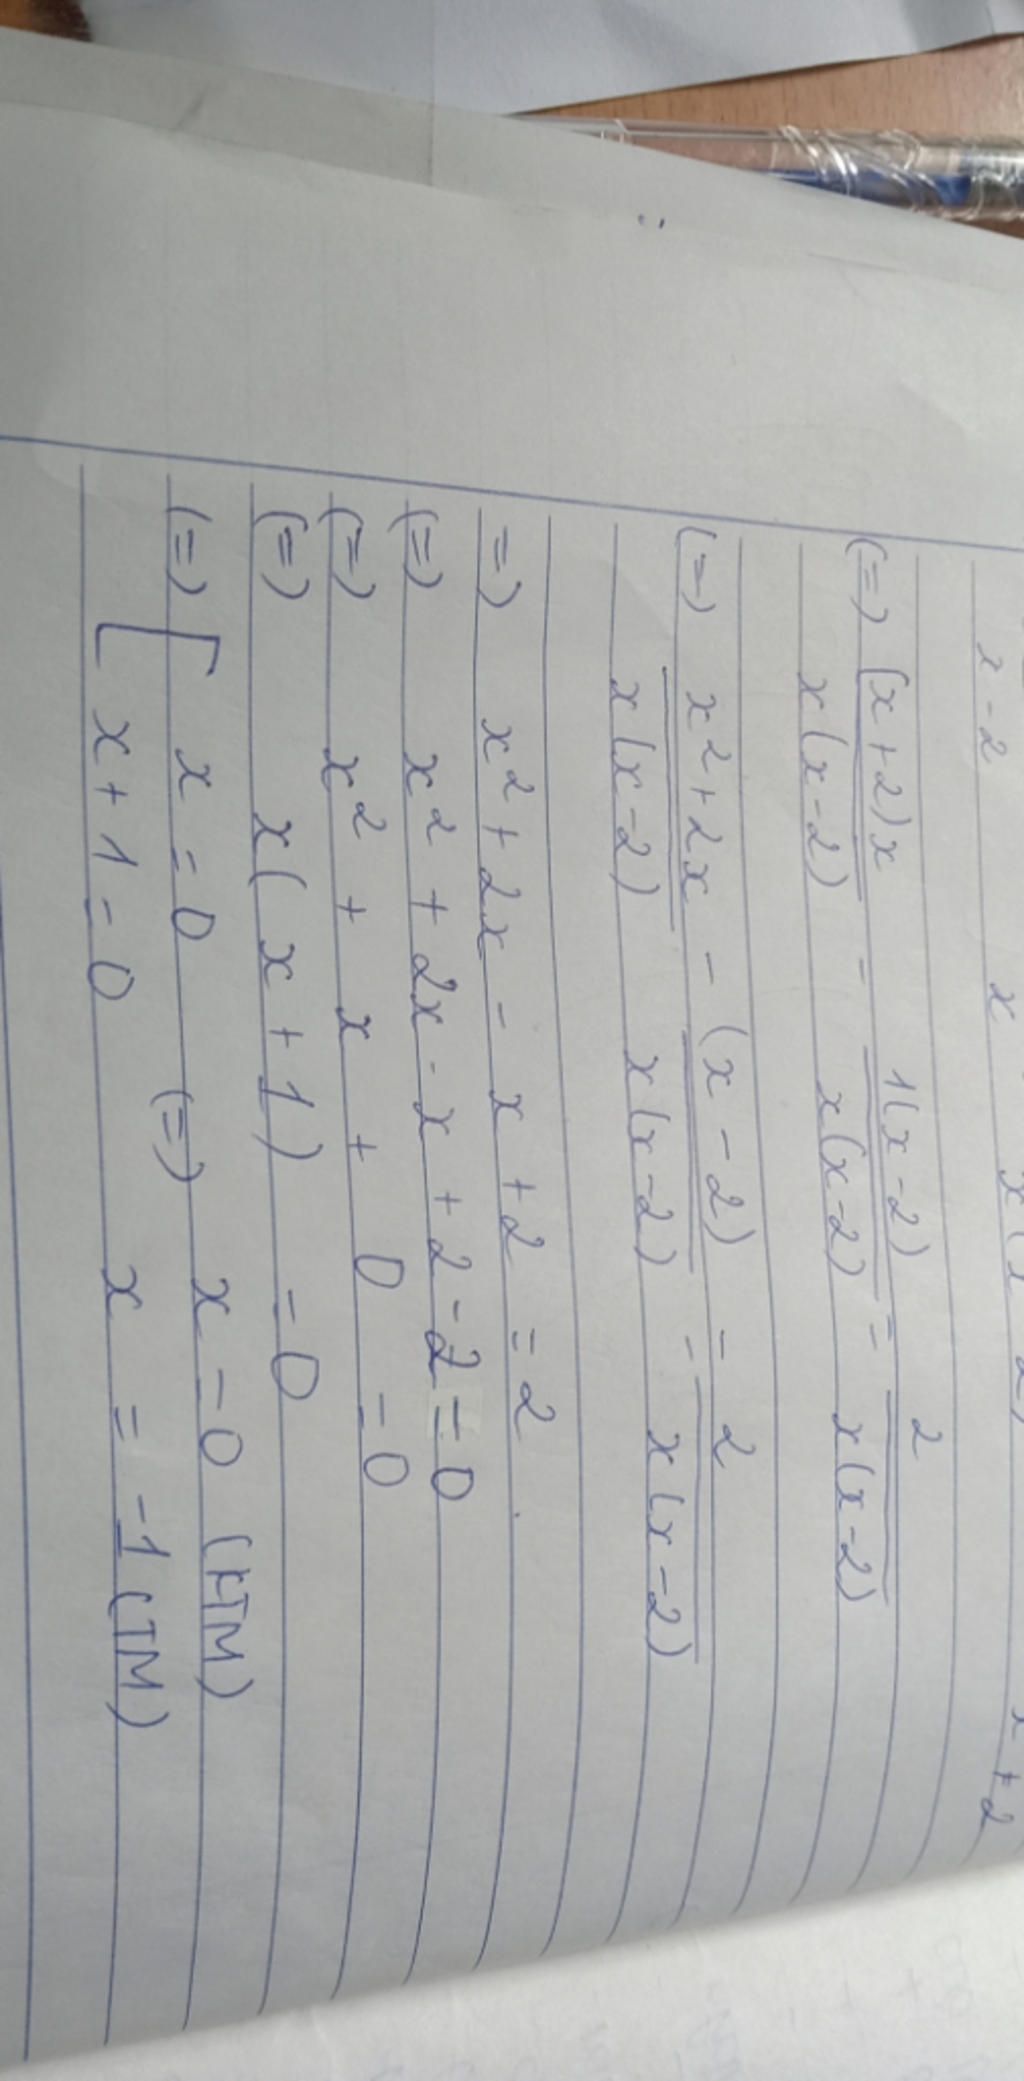 x-2 x x(x-2) x+2
(=) (x+2)x/x(x-2) - 1(x-2)/x(x-2) = 2/x(x-2)
(=) x²+2x/x(x-2) - (x-2)/x(x-2) = 2/x(x-2)
=) x²+2x - x+2 = 2
(=) x² + 2x - x + 2 - 2 = 0
(=) x² + x + 0 = 0
(=) x(x+1) = 0
(=) [ x = 0 (=) x = 0 (KTM)
x+1 = 0 x = -1 (TM)